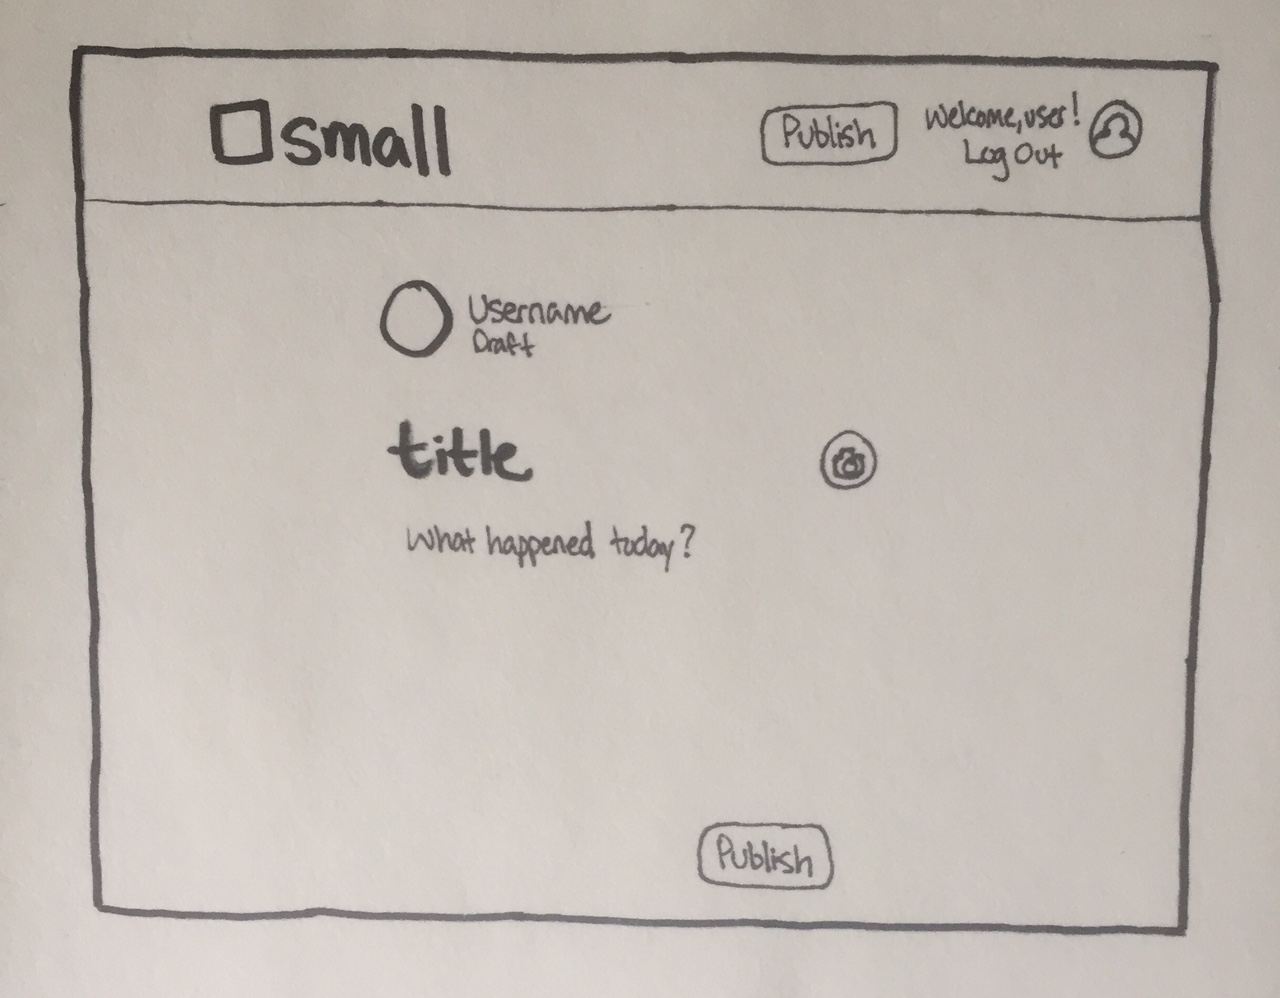 small
Publish
Welcome, user!
Log Out
Username
Draft
title
What happened today?
Publish